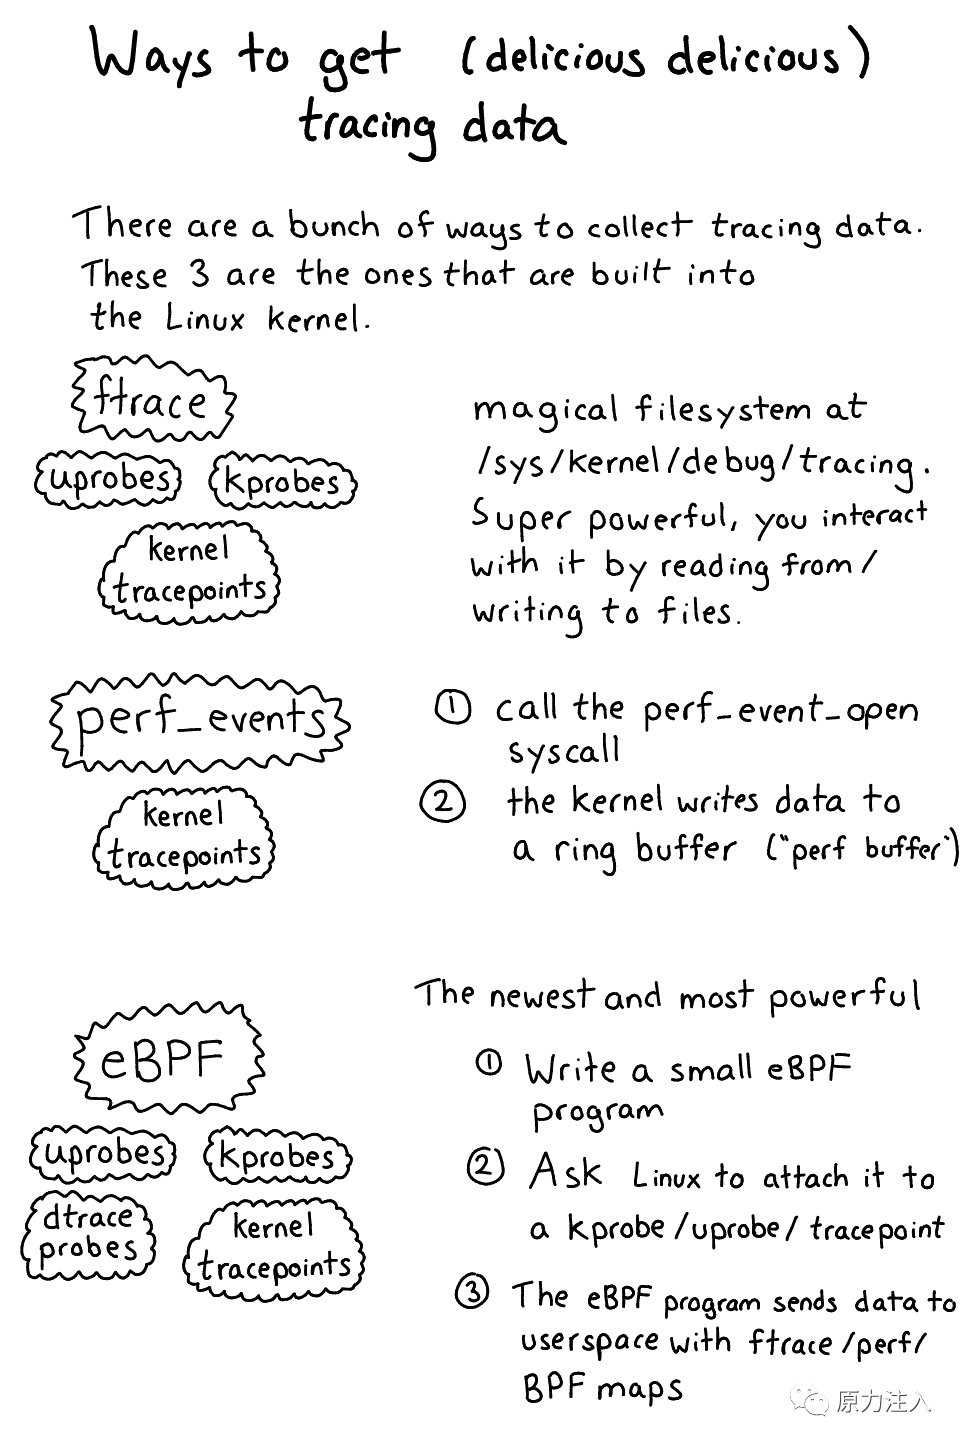 Ways to get (delicious delicious)
tracing data
There are a bunch of ways to collect tracing data.
These 3 are the ones that are built into
the Linux kernel.
ftrace
uprobes
kprobes
kernel
tracepoints
magical filesystem at
/sys/kernel/debug/tracing.
Super powerful, you interact
with it by reading from/
writing to files.
perf_events
kernel
tracepoints
① call the perf_event_open
syscall
② the kernel writes data to
a ring buffer ("perf buffer")
eBPF
uprobes
kprobes
dtrace
probes
kernel
tracepoints
The newest and most powerful
① Write a small eBPF
program
② Ask Linux to attach it to
a kprobe/uprobe/tracepoint
③ The eBPF program sends data to
userspace with ftrace/perf/
BPF maps
原力注入